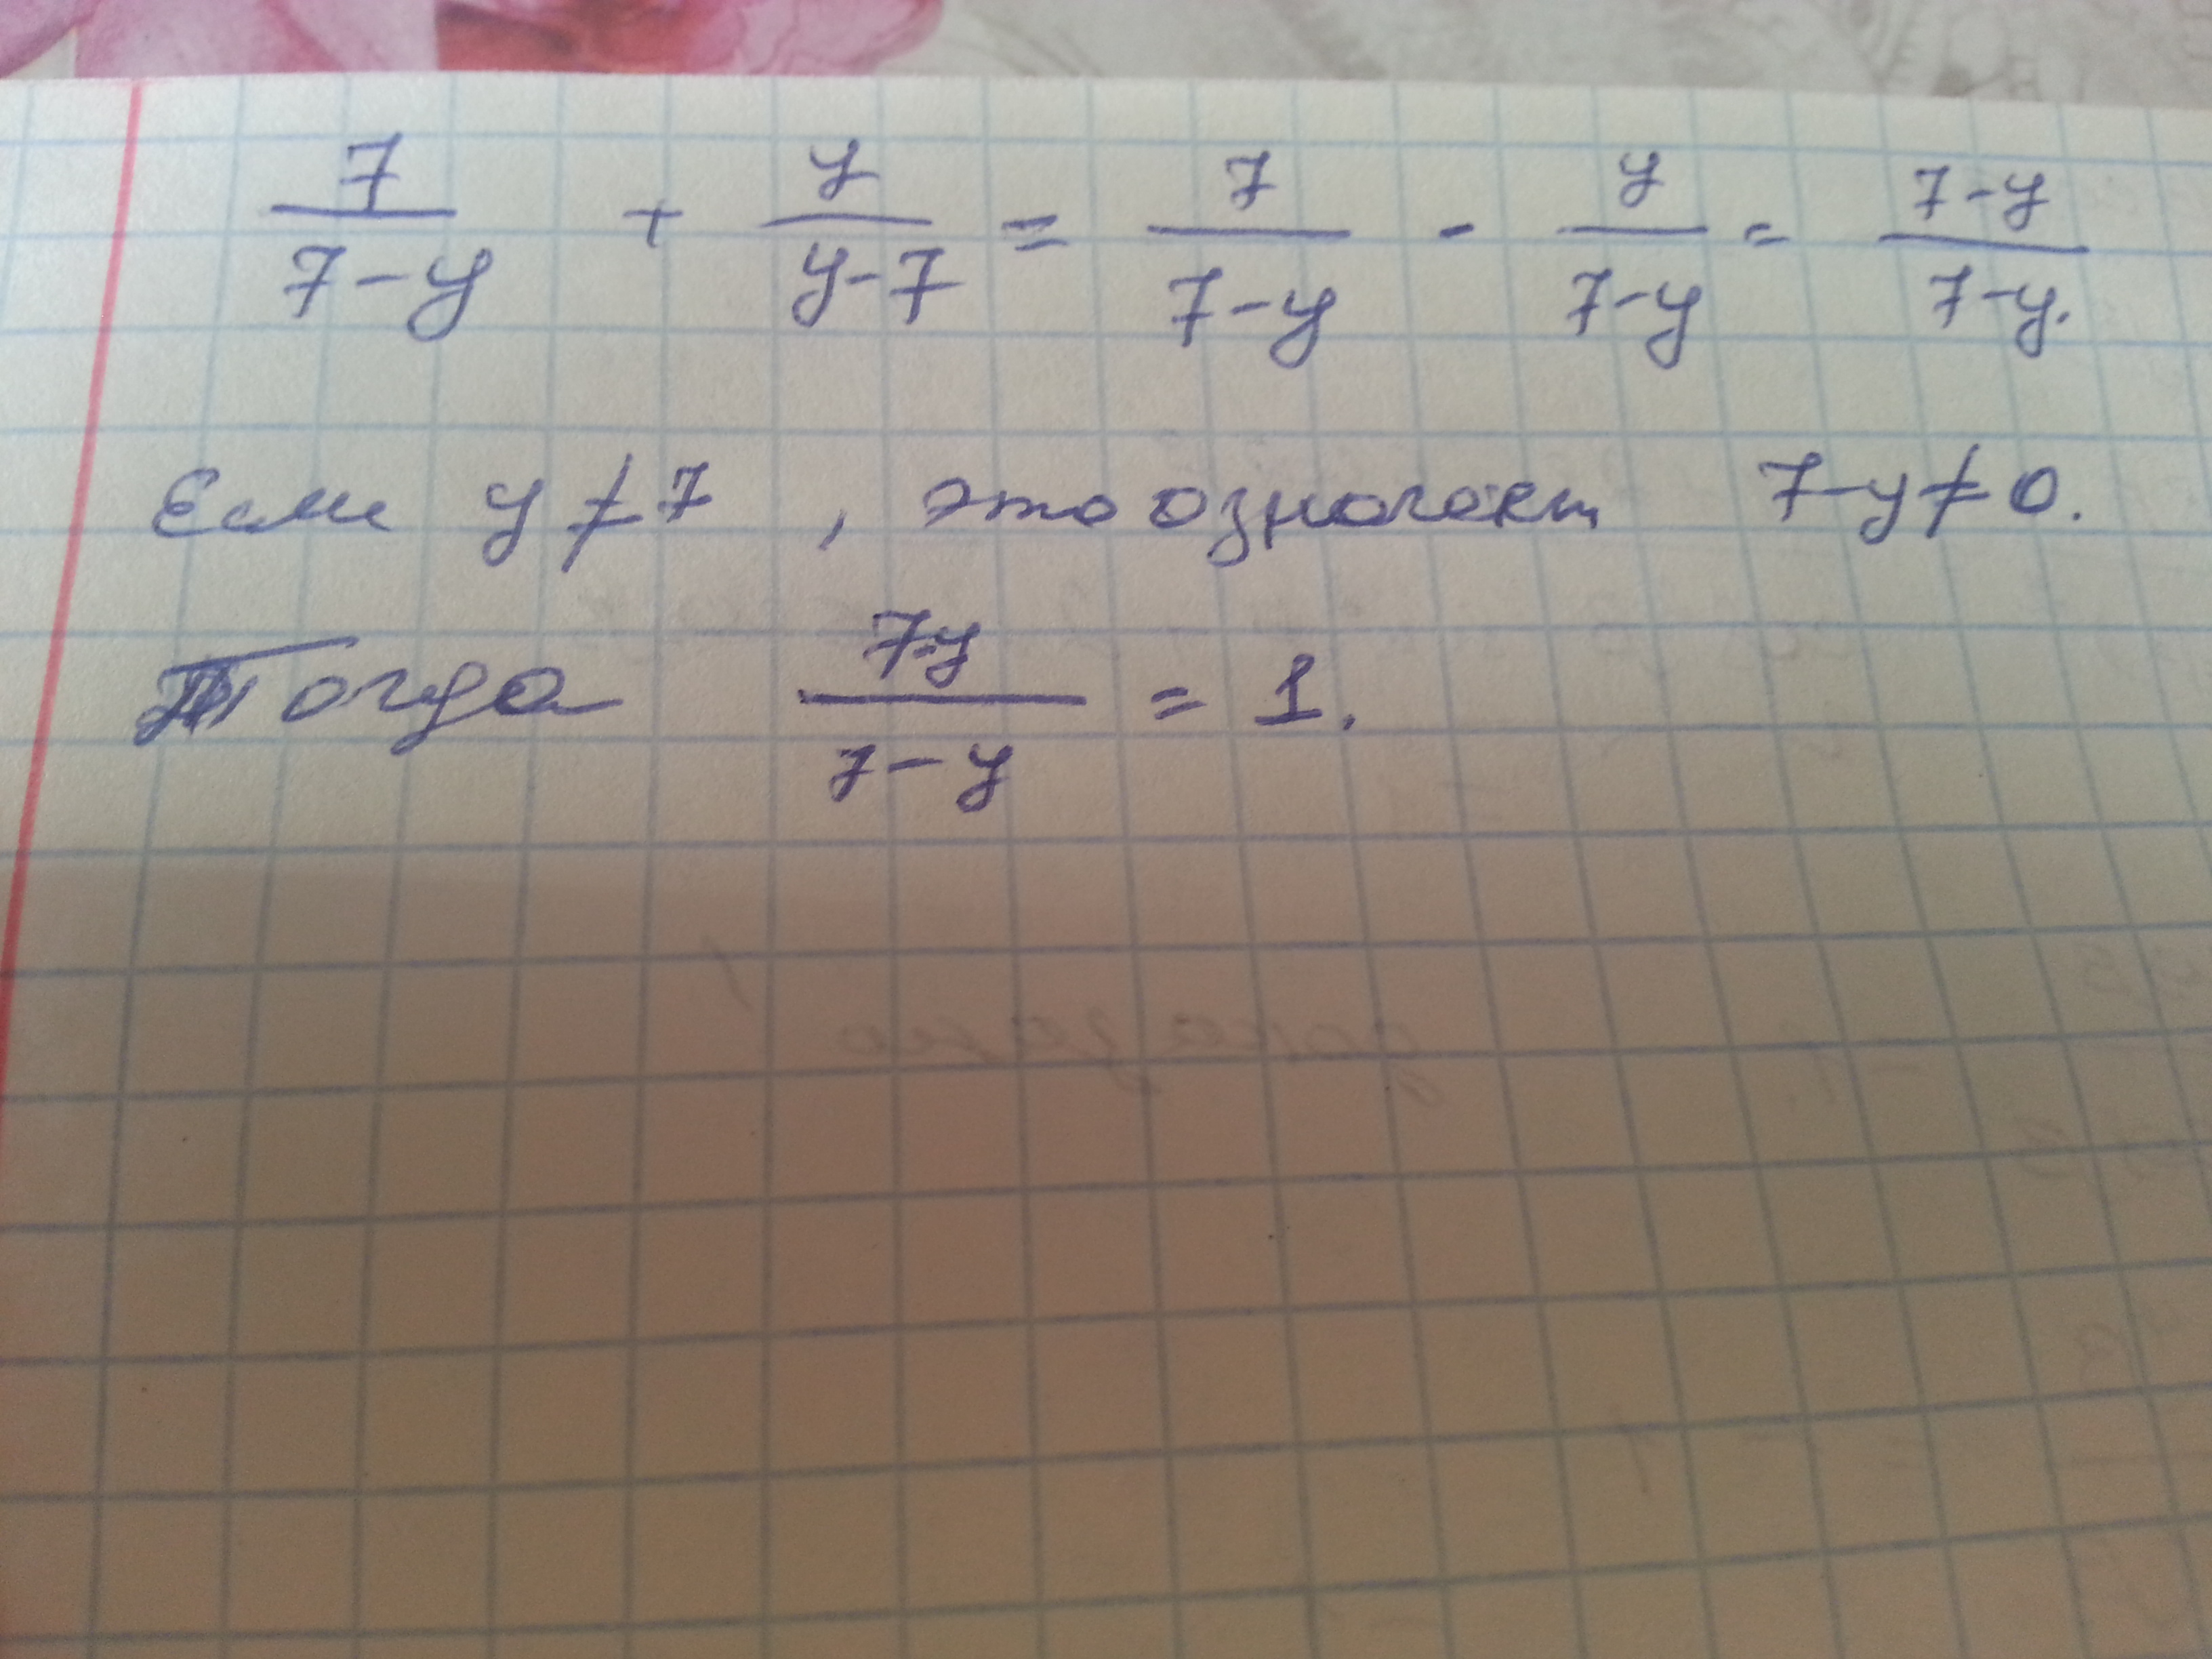 7/(7-y) + y/(y-7) = 7/(7-y) - y/(7-y) = (7-y)/(7-y).
Если y ≠ 7, это означает 7-y ≠ 0.
Тогда (7-y)/(7-y) = 1.